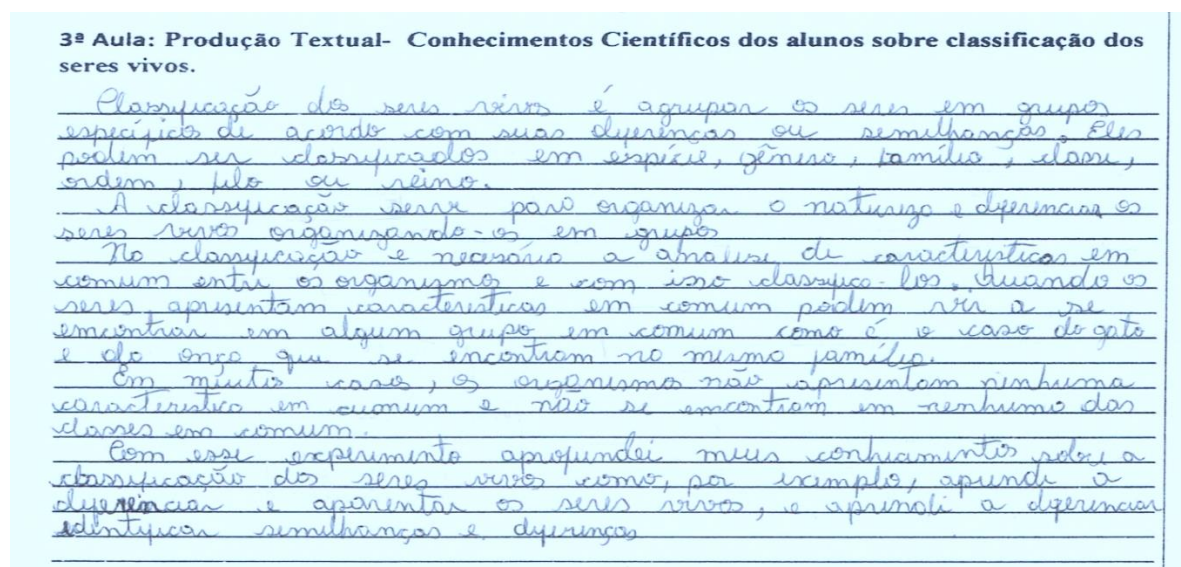 3ª Aula: Produção Textual- Conhecimentos Científicos dos alunos sobre classificação dos
seres vivos.
Classificação dos seres vivos é agrupar os seres em grupos
específicos de acordo com suas diferenças ou semilhanças. Eles
podem ser classificados em espécie, gênero, família, classe,
ordem, filo ou reino.
A classificação serve para organizar a natureza e diferenciar os
seres vivos organizando-os em grupos
Na classificação e necesário a analise de caracteristicas em
comum entre os organizmos e com isso classifica-los. Quando os
seres apresentam caracteristicas em comum podem vir a se
emcontrar em algum grupo em comum como é o caso do gato
e da onça que se encontram na mesma família.
Em muitos casos, os organismos não apresentam ninhuma
caracteristica em cuomum e não se emcontram em nenhuma das
classes em comum.
Com esse experimento aprofundei meus conhecimentos sobre a
classificação dos seres vivos como, por exemplo, aprendi a
diferenciar e aparentar os seres vivos, e aprendi a diferenciar
identificar semilhanças e diferenças